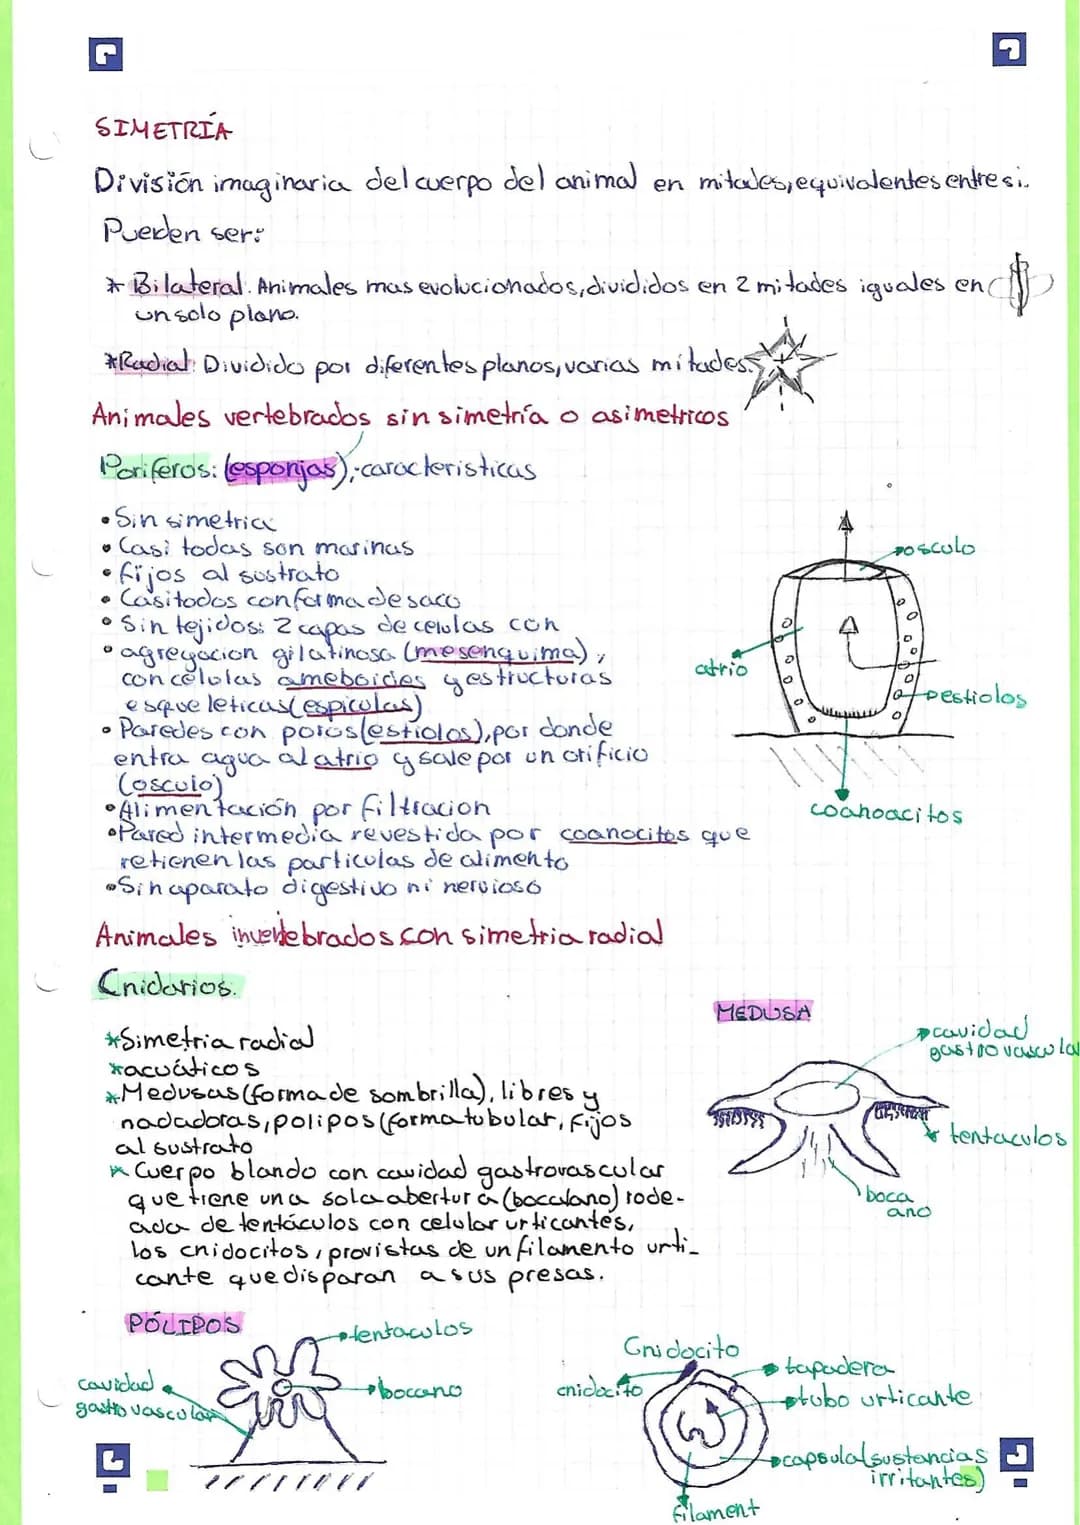 SIMETRÍA
División imaginaria del cuerpo del animal en mitades, equivalentes entre si.
Pueden ser:
* Bilateral. Animales mas evolucionados, divididos en 2 mitades iguales en
un solo plano.
* Radial: Dividido por diferentes planos, varias mitades.
Animales vertebrados sin simetría o asimetricos
Poriferos: (esponjas); caracteristicas
• Sin simetria
• Casi todas son marinas
• fijos al sustrato
• Casi todos con forma de saco
• Sin tejidos: 2 capas de celulas con
• agregacion gilatinosa (mesenquima),
con celulas ameboides y estructuras
esqueleticas (espiculas)
• Paredes con poros (estiolos), por donde
entra agua al atrio y sale por un orificio
(osculo)
• Alimentación por filtracion
• Pared intermedia revestida por coanocitos que
retienen las particulas de alimento
• Sin aparato digestivo ni nervioso
osculo
atrio
estiolos
coanoacitos
Animales invertebrados con simetria radial
Cnidarios.
* Simetria radial
* acuáticos
* Medusas (forma de sombrilla), libres y
nadadoras, polipos (forma tubular, fijos
al sustrato
* Cuerpo blando con cavidad gastrovascular
que tiene una sola abertura (boca/ano) rode-
ada de tentáculos con celular urticantes,
los cnidocitos, provistas de un filamento urti-
cante que disparan a sus presas.
MEDUSA
cavidad
gastrovascular
tentaculos
boca
ano
PÓLIPOS
tentaculos
cavidad
gastrovascular
bocano
Cnidocito
cnidocito
tapadera
tubo urticante
capsula (sustancias
irritantes)
filament